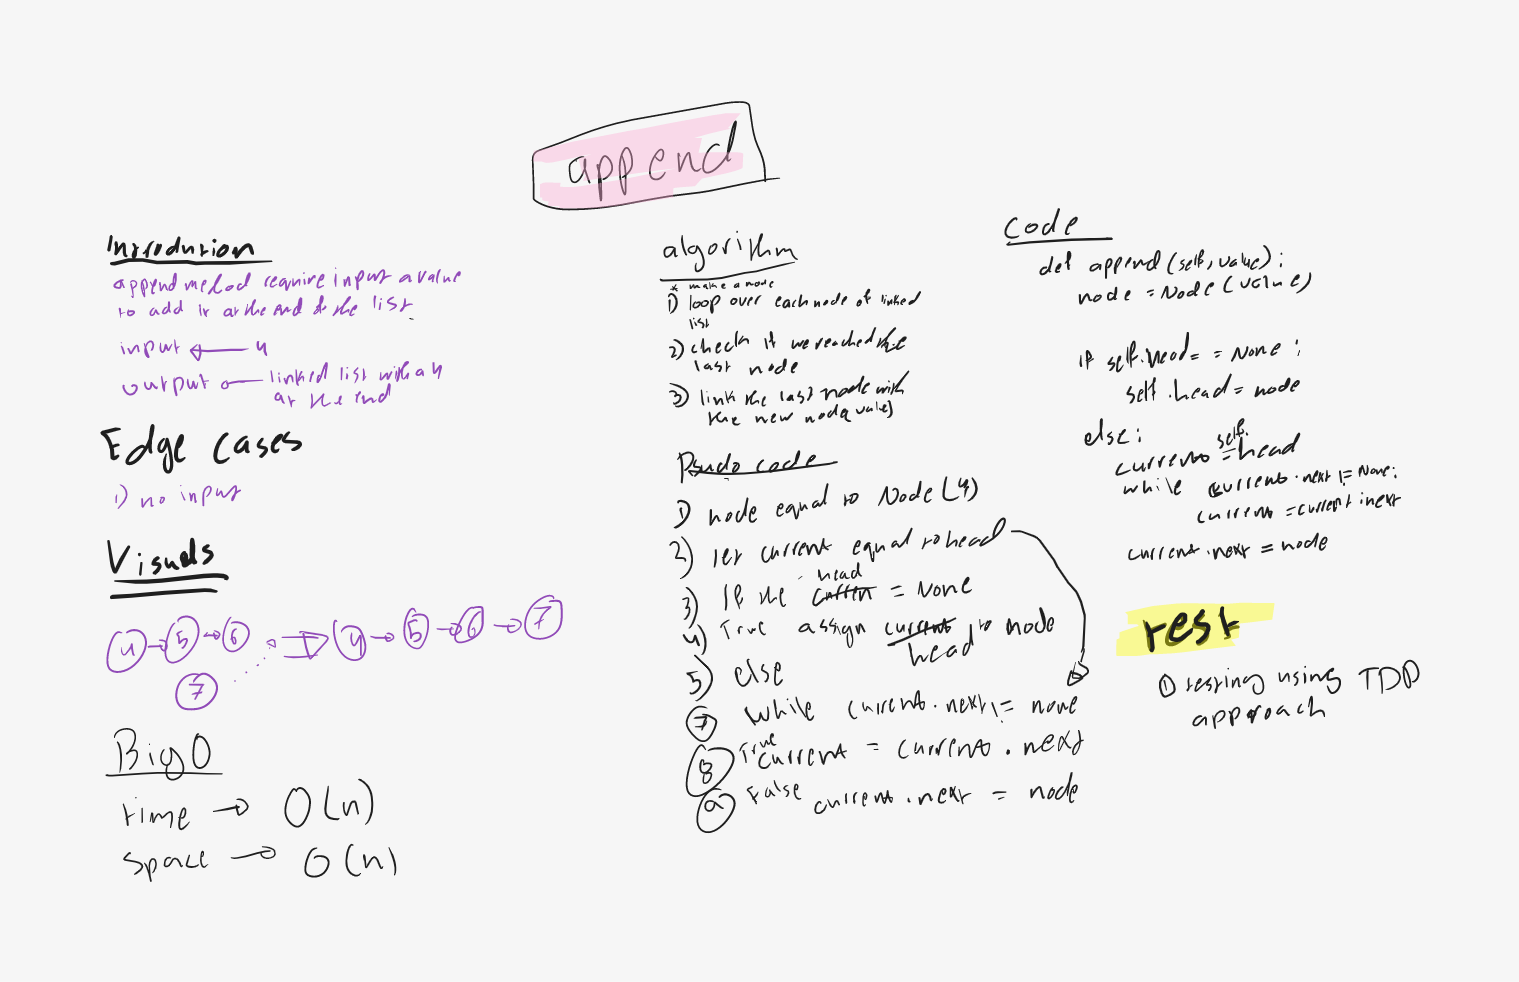 append
Introdution
append method require input a value
to add it at the end of the list.
input ← 4
output ← linked list with a 4
at the end
Edge cases
1) no input
Visuals
4 → 5 → 6 ⇒ 4 → 5 → 6 → 7
7
Big O
time → O(n)
space → O(n)
algorithm
* make a node
1) loop over each node of linked
list
2) check if we reached the
last node
3) link the last node with
the new node(value)
Psudo code
1) node equal to Node(4)
2) let current equal to head
3) If the head = None
4) True assign head to node
5) else
7 while current.next != none
8 True current = current.next
9 False current.next = node
Code
def append(self, value):
node = Node(value)
if self.head == None:
self.head = node
else:
current = self.head
while current.next != None:
current = current.next
current.next = node
test
1) testing using TDD
approach